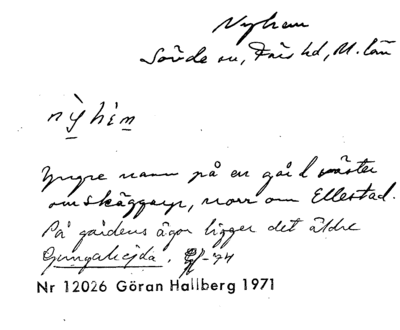 Nyhem
Sövde sn, Färs hd, M. län
nỳhèm
Yngre namn på en gård väster
om Skäggarp, norr om Ellestad.
På gårdens ägor ligger det äldre
Ljungahejda. -74
Nr 12026 Göran Hallberg 1971